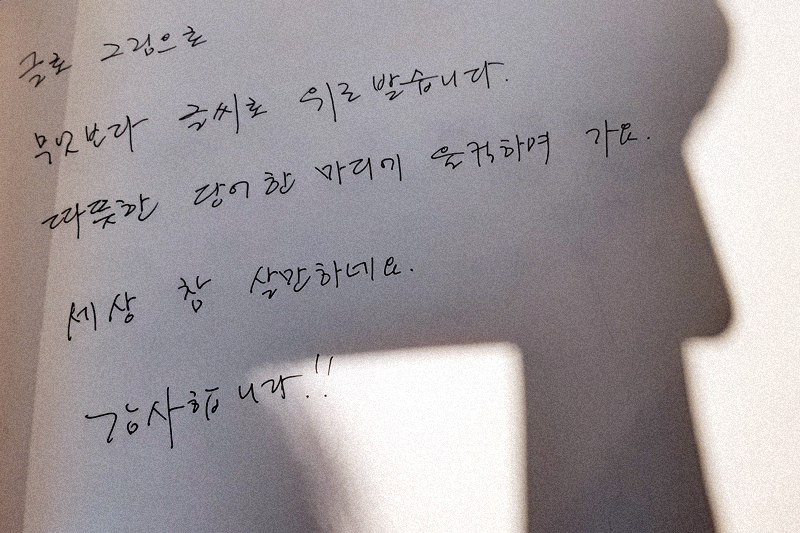 글로 그림으로
무엇보다 글씨로 위로 받습니다.
따뜻한 단어 한 마디에 울컥하며 가요.
세상 참 살만하네요.
감사합니다!!